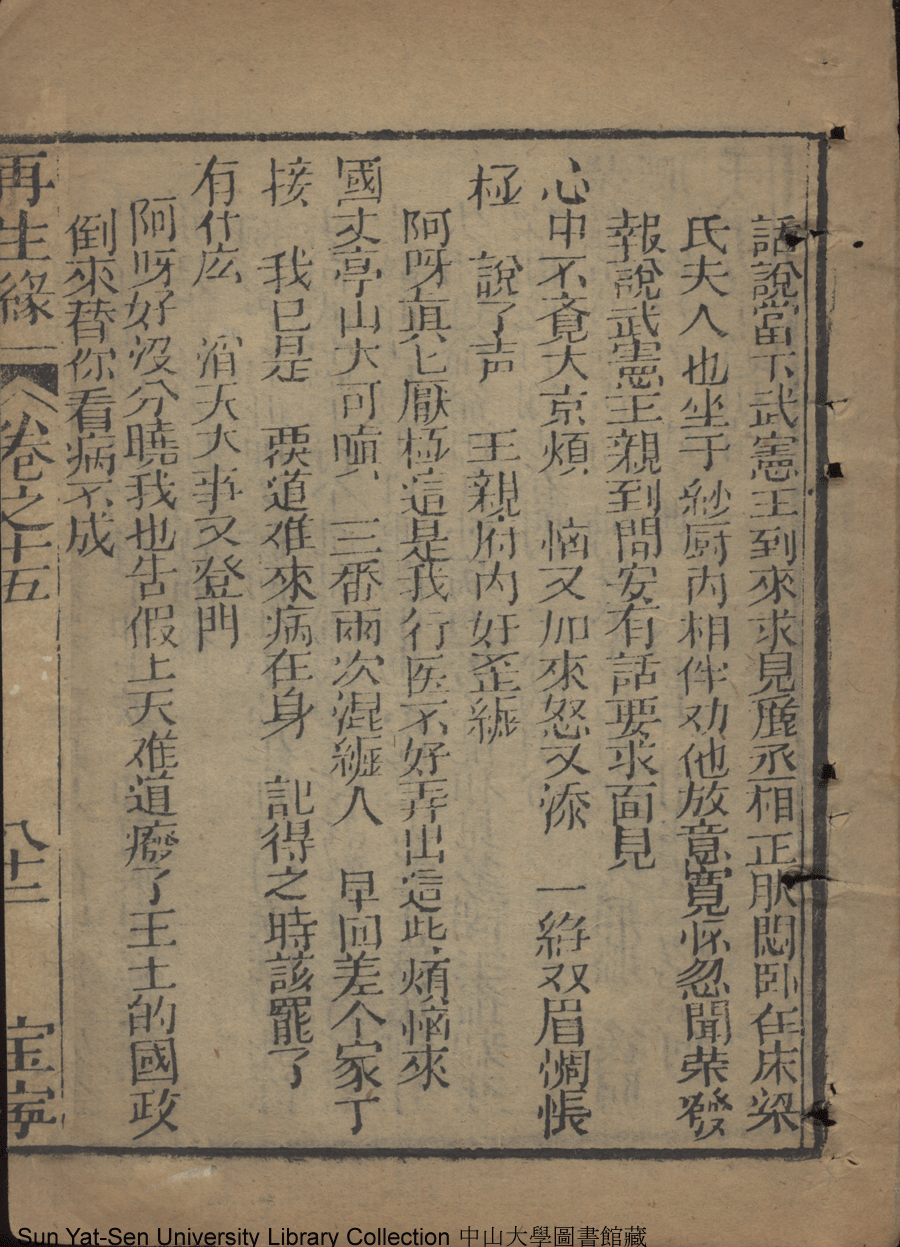 話說當下武憲王到來求見酈丞相正服悶卧在床梁
氏夫人也坐于紗厨内相伴劝他放意寬怀忽聞荣發
報說武憲王親到問安有話要求面見
心中不覺大京煩 惱又加來怒又添 一縱双眉惆悵
極 說了声 王親府内好歪纏
阿呀真七厭極這是我行医不好弄出這些煩惱來
國丈亭山大可嗔 三番兩次混纏人 早回差个家丁
接 我已是 要道难來病在身 記得之時該罷了
有什庅 滔天大事又登門
阿呀好沒分曉我也告假上天难道癈了王土的國政
倒來替你看病不成
再生緣 卷之十五 八十二 宝寧
Sun Yat-Sen University Library Collection 中山大學圖書館藏